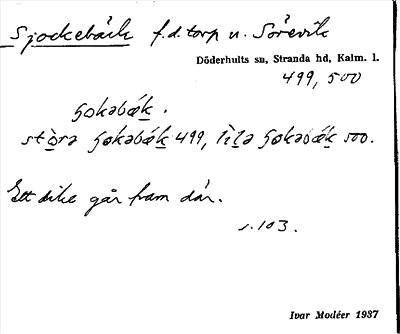 Sjockebäck f.d. torp u. Sörevik
Döderhults sn, Stranda hd, Kalm. l.
499, 500
ʂokəbǽk.
stòrə ʂokəbǽk 499, lìlə ʂokəbǽk 500.
Ett dike går fram där.
s. 103.
Ivar Modéer 1937